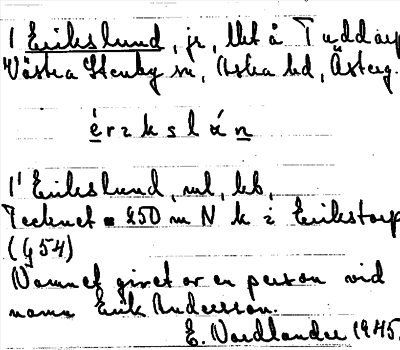 1 Erikslund, jr, lht å Tuddarp
Västra Stenby sn, Aska hd, Österg.
é r ɩ k s l ú n
1' Erikslund, ml, kb,
Tecknet 250 m N k i Erikstorp
(G 54)
Namnet givet av en person vid
namn Erik Andersson.
E. Nordlander 1945.